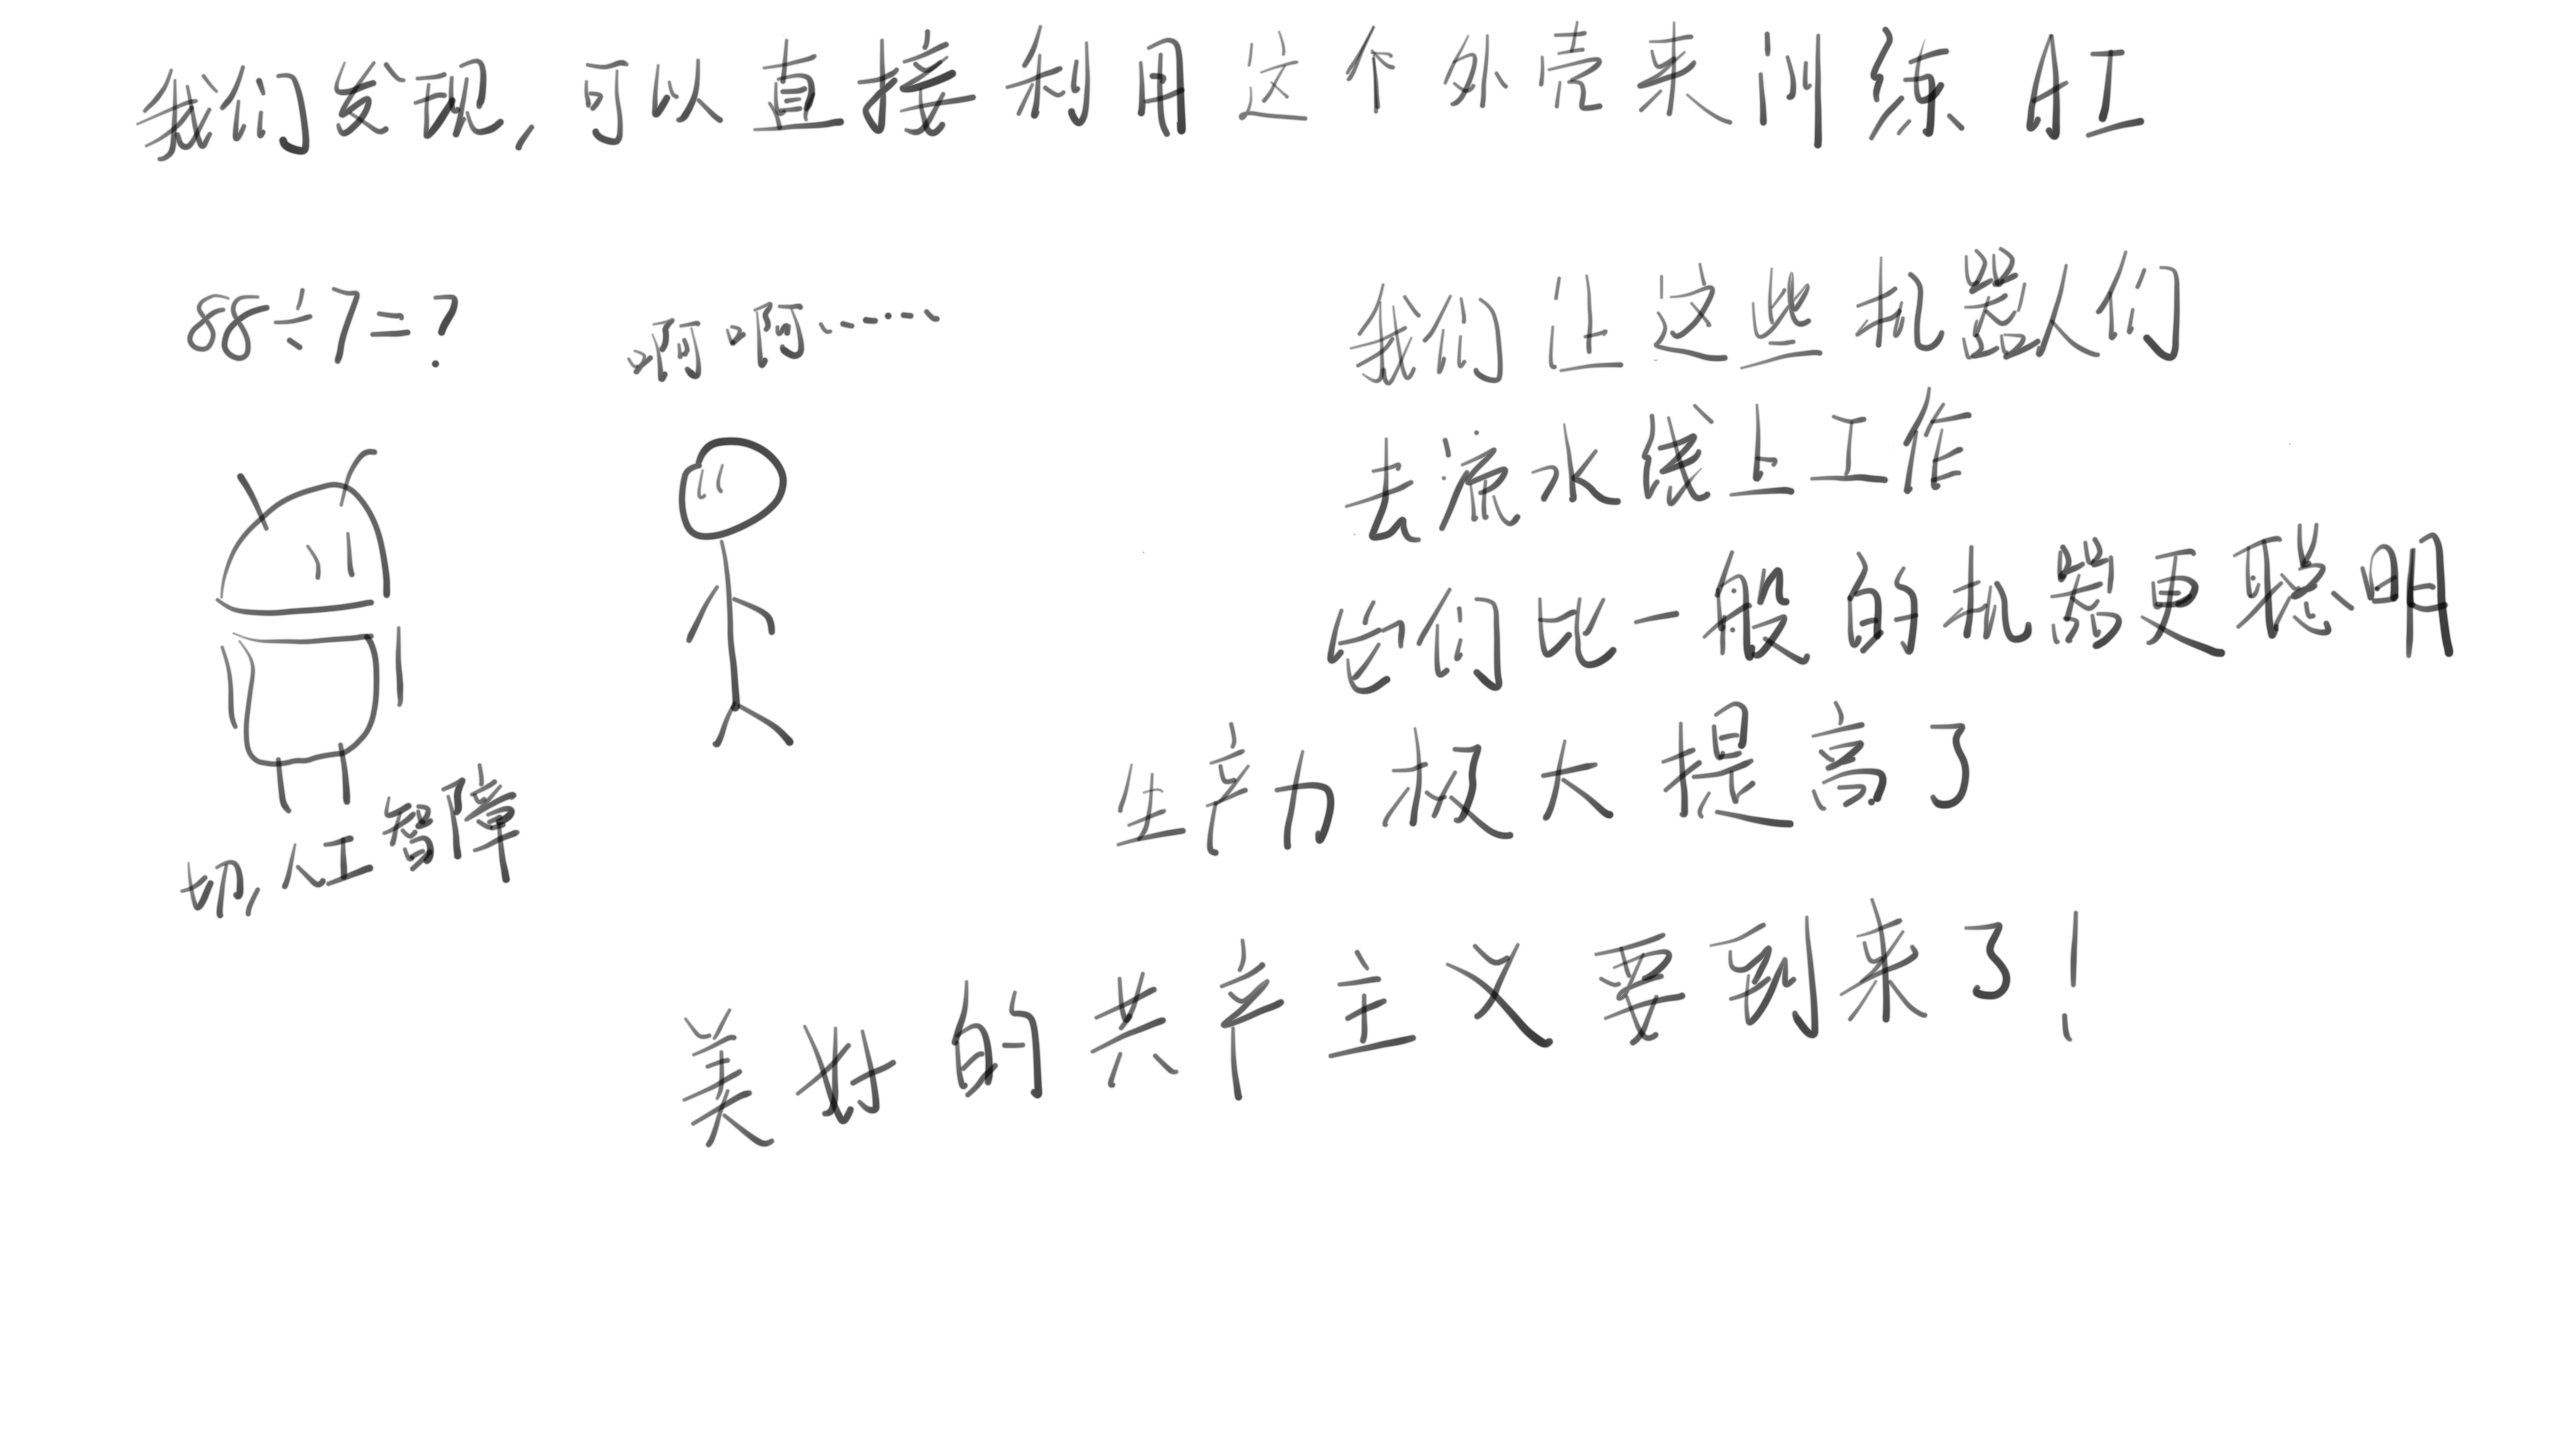 我们发现,可以直接利用这个外壳来训练AI
88÷7=?
啊啊……
切,人工智障
我们让这些机器人们
去流水线上工作
它们比一般的机器更聪明
生产力极大提高了
美好的共产主义要到来了!